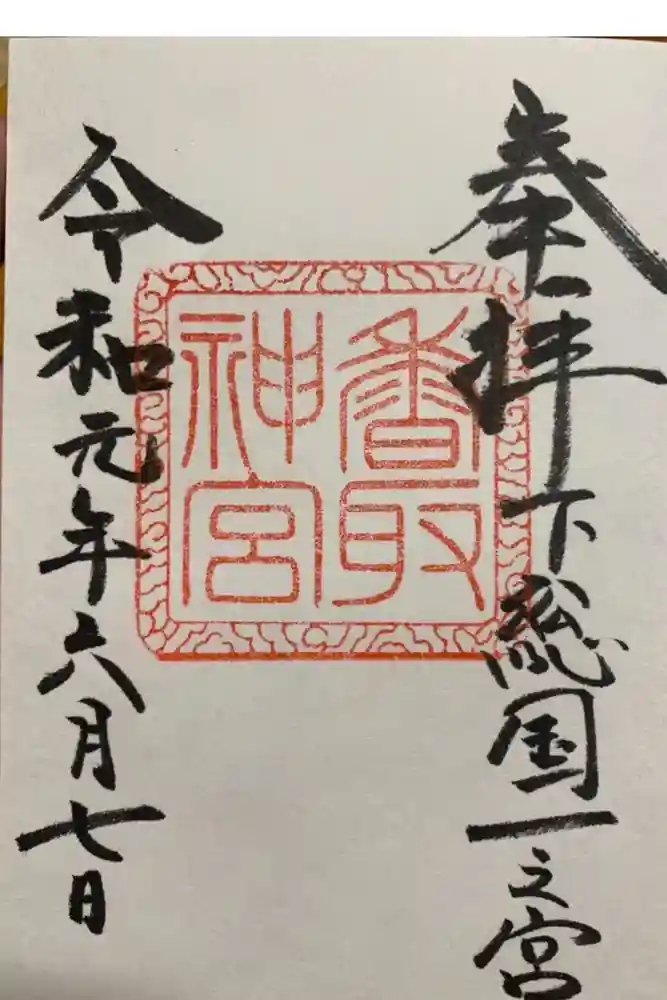 奉拝下総国一之宮
香取
神宮
令和元年六月七日